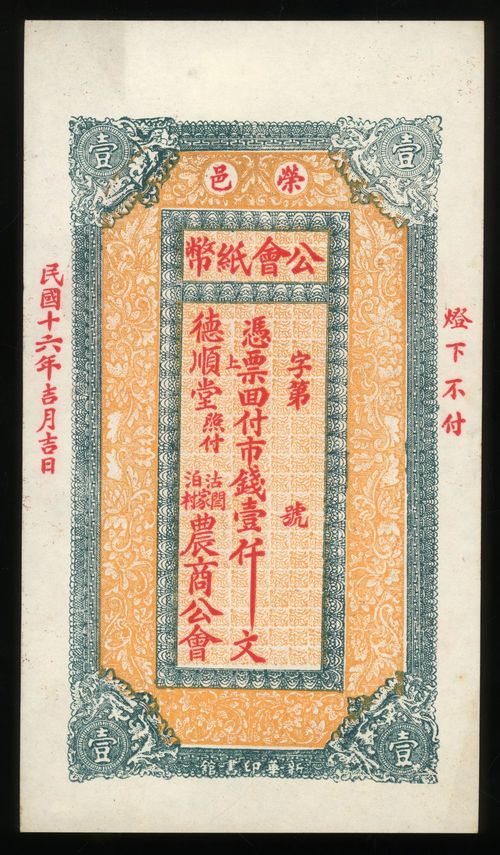 壹
壹
榮邑
公會紙幣
燈下不付
字第 號
憑票面付市錢壹仟文
上
德順堂照付
沽
泊家村
農商公會
民國十六年吉月吉日
壹
壹
新華印書館